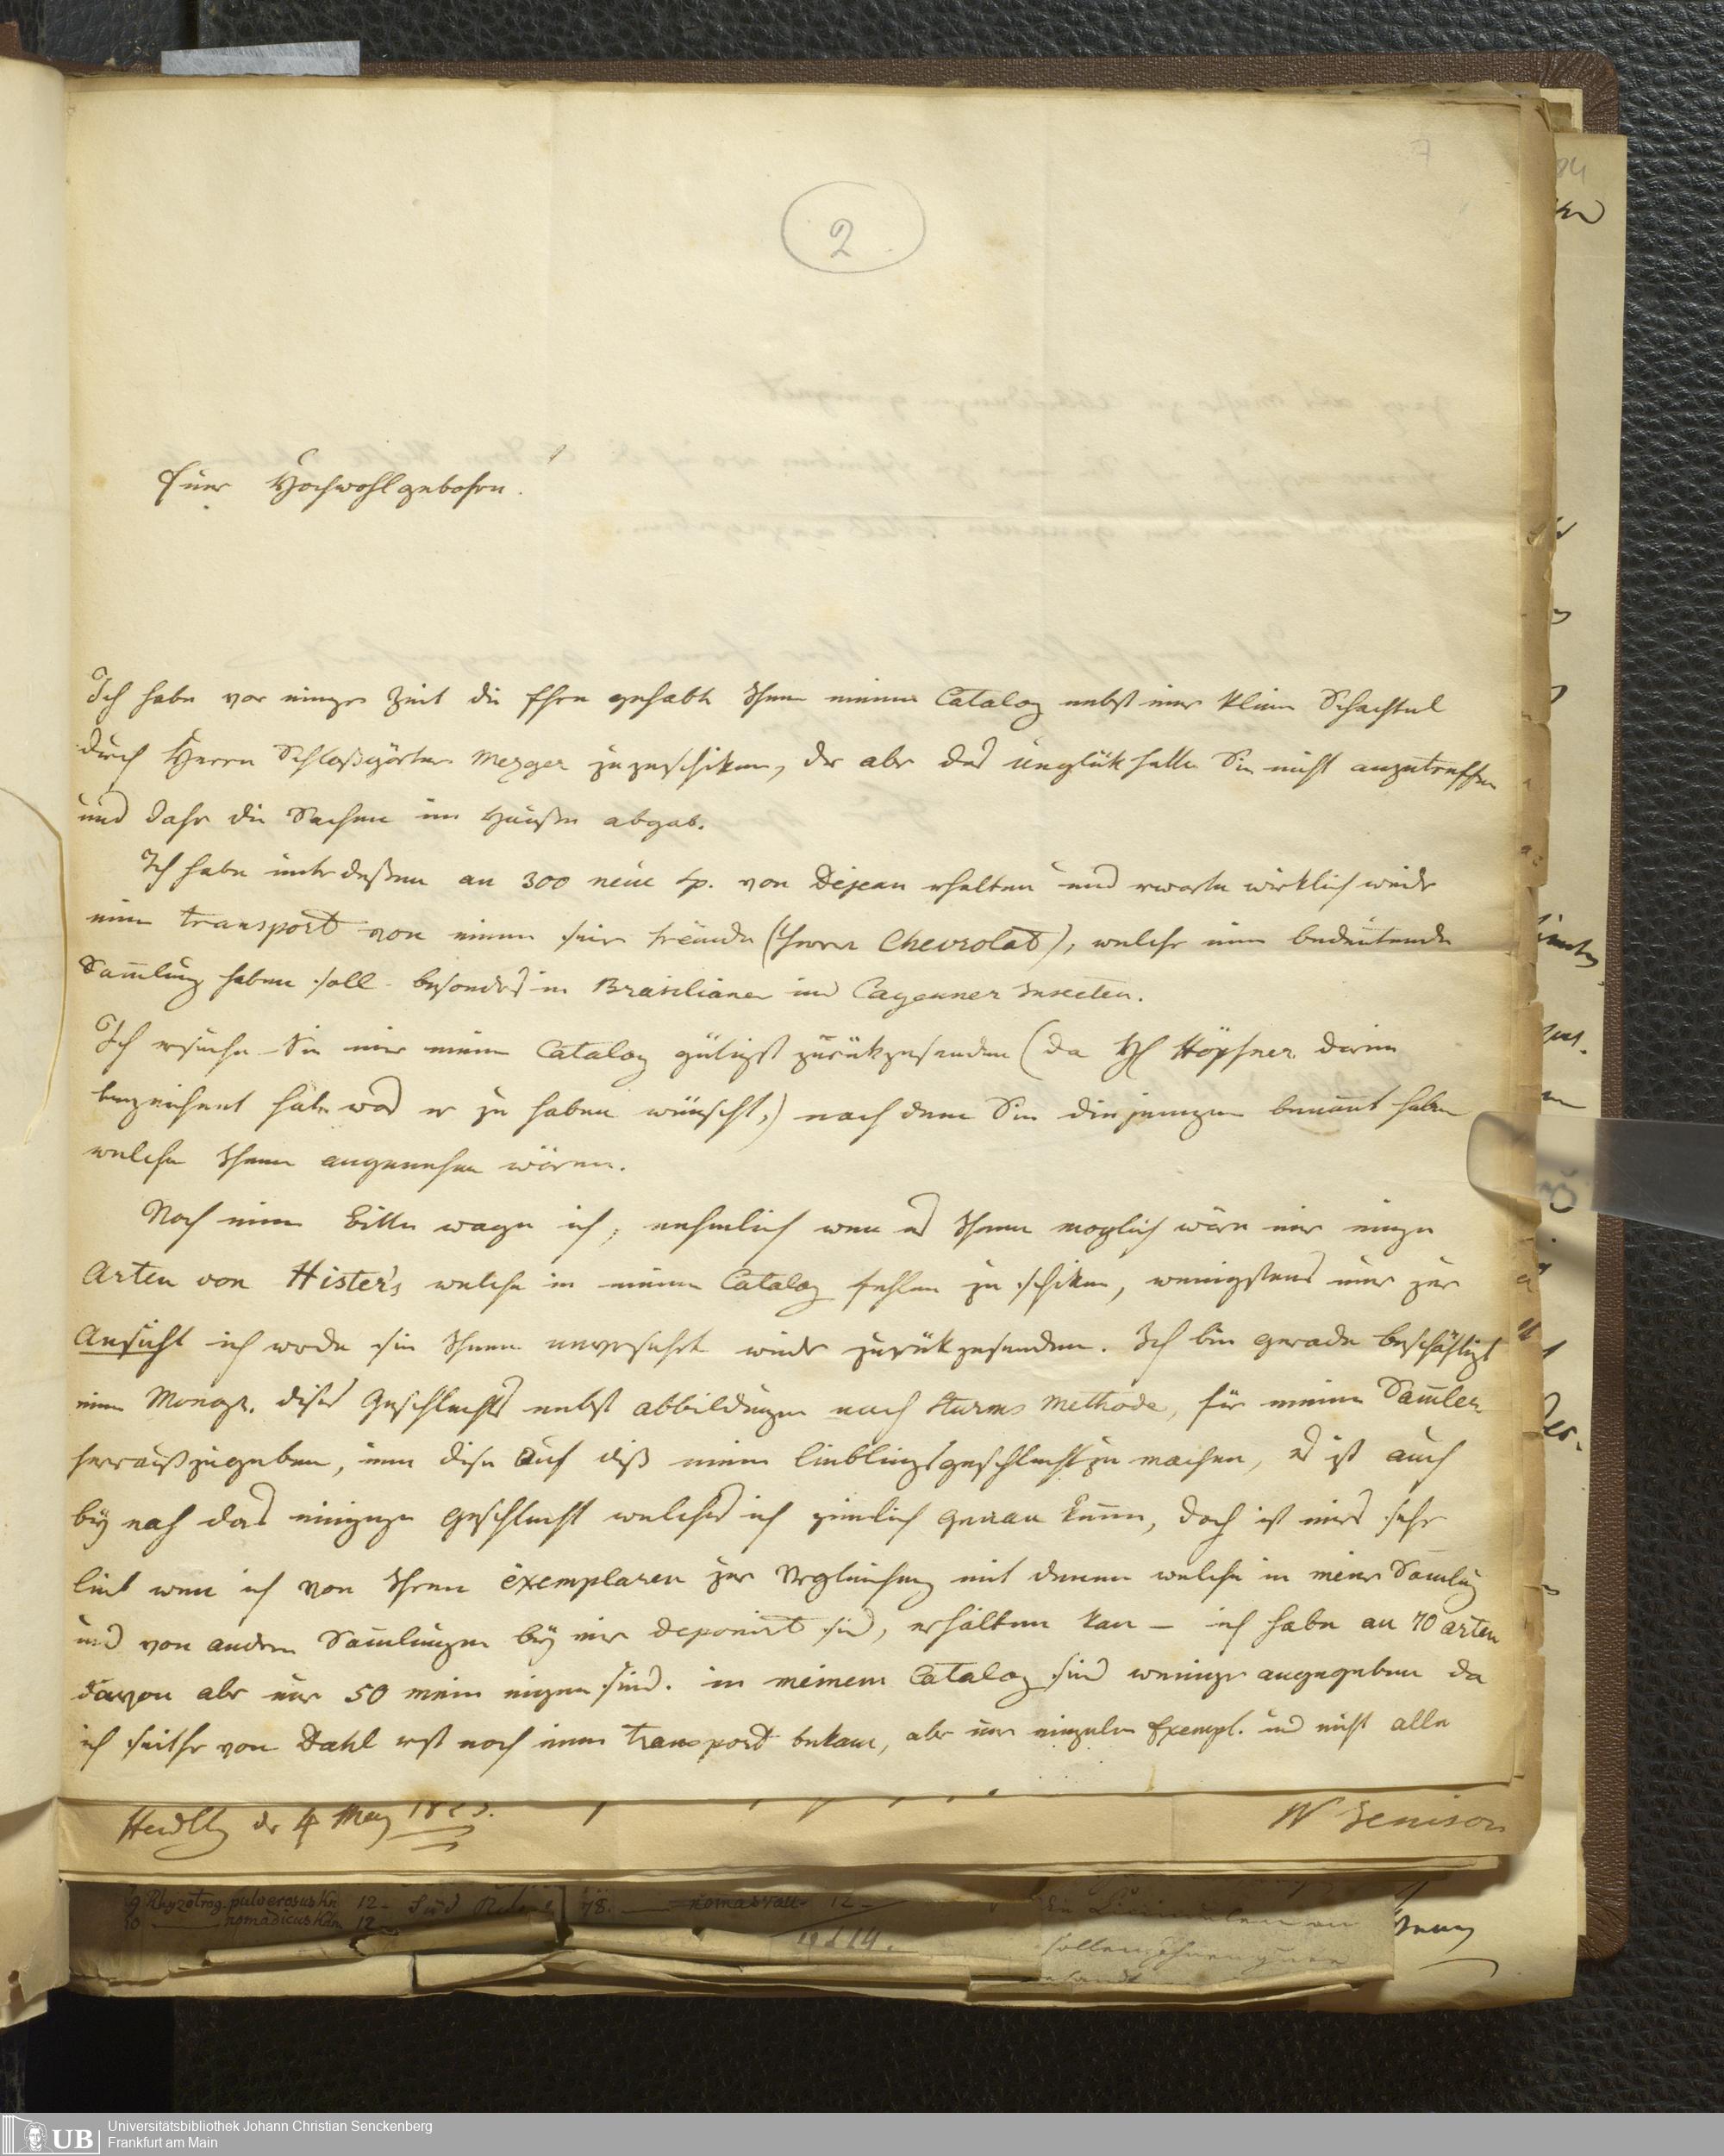 7
2
Euer Hochwohlgebohrn.
Ich habe vor einiger Zeit die Ehre gehabt Ihnen meinen Catalog nebst einer kleinen Schachtel
durch Herrn Schloßgärtner Mezger zuzuschiken, der aber das unglük hatte Sie nicht anzutreffen
und daher die Sachen im Hauße abgab.
Ich habe unterdeßen an 300 neue Sp. von Dejean erhalten und erwarte wirklich wieder
einen transport von einem seiner Freunde (Herrn Chevrolat), welcher eine bedeutende
Sam̄lung haben soll besonders in Brasilianer und Cayenner Insecten.
Ich ersuche Sie mir meinen Catalog gütigst zurükzusenden (da H Höpfner darin
bezeichnet habe was er zu haben wünscht,) nach dem Sie diejenigen benan̄t haben
welche Ihnen angenehm wären.
Noch eine Bitte wage ich, nehmlich wen es Ihnen moglich wäre mir einige
Arten von Hister's welche in meinem Catalog fehlen zu schiken, wenigstens nur zur
Ansicht ich werde sie Ihnen unversehrt wieder zurükzusenden. Ich bin gerade beschäftigt
eine Monogr. dises Geschlechts nebst abbildungen nach Sturms Methode, für meine Sam̄ler
herrauszugeben, um dise auf diß mein lieblingsgeschlecht zu machen, es ist auch
bey nah das einzige Geschlecht welches ich zimlich genau ken̄e, doch ist mirs sehr
lieb wen ich von Ihren exemplaren zur Vergleichung mit denen welche in meiner Sam̄lug
und von andern Sam̄lungen bey mir deponirt sind, erhalten kan – ich habe an 70 arten
davon aber nur 50 mein eigen sind. in meinem Catalog sind weniger angegeben da
ich seither von Dahl erst noch einen Transport bekam, aber nur einzelne Exempl. und nicht alle
Heidlbg der 4 May
19 Rhyzotrog. pulverosus Kn 12-
20 nomadicus 12-
78. 12-
sollen Ihnen
Universitätsbibliothek Johann Christian Senckenberg
Frankfurt am Main
UB